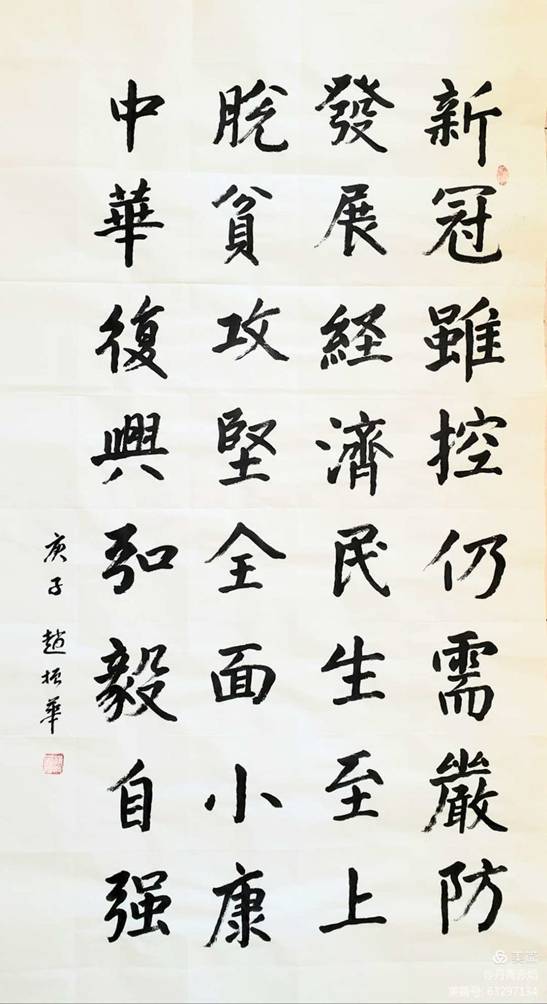 新冠雖控仍需嚴防
發展経濟民生至上
脫貧攻堅全面小康
中華復興弘毅自强
庚子 趙振華
美篇
美篇号: 63297134